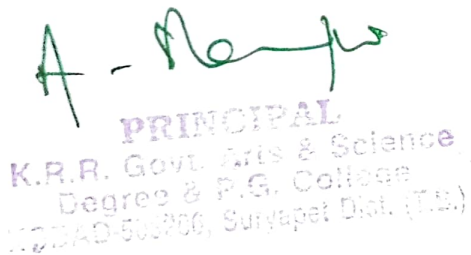 PRINCIPAL
K.R.R. Govt. Arts & Science
Degree & P.G. College
Suryapet Dist. (T.S.)